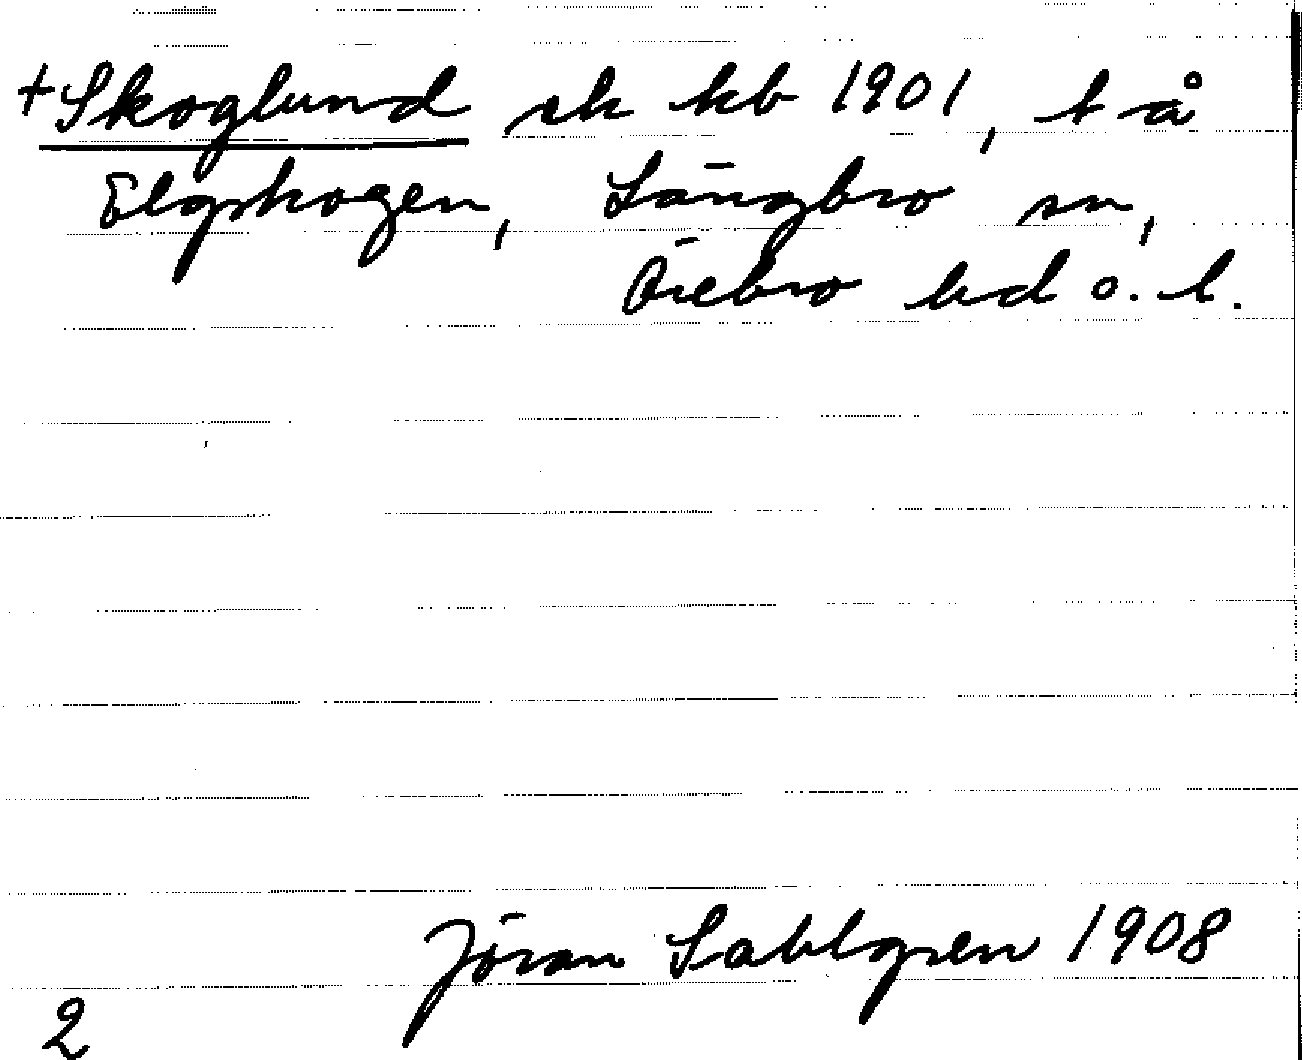 +Skoglund sk kb 1901, t å
Elgskogen, Längbro sn,
Örebro hd o. l.
Jöran Sahlgren 1908
2